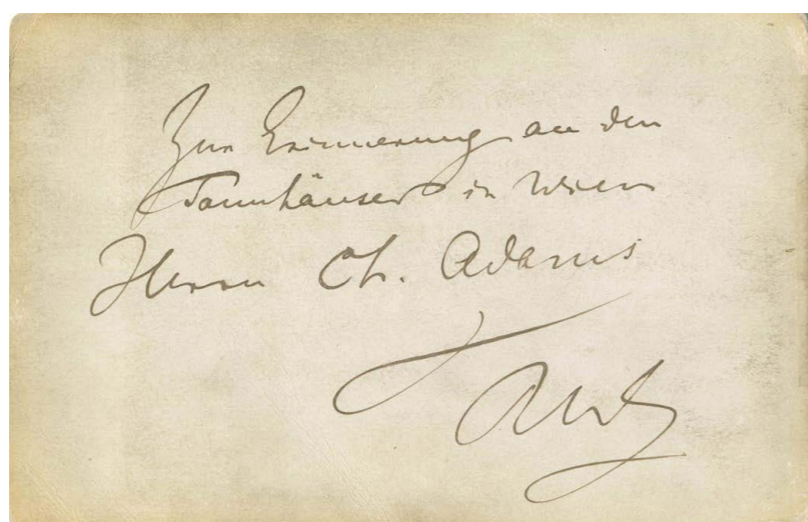 Zur Erinnerung an den
Tannhäuser in Wien
Herrn Ch. Adams